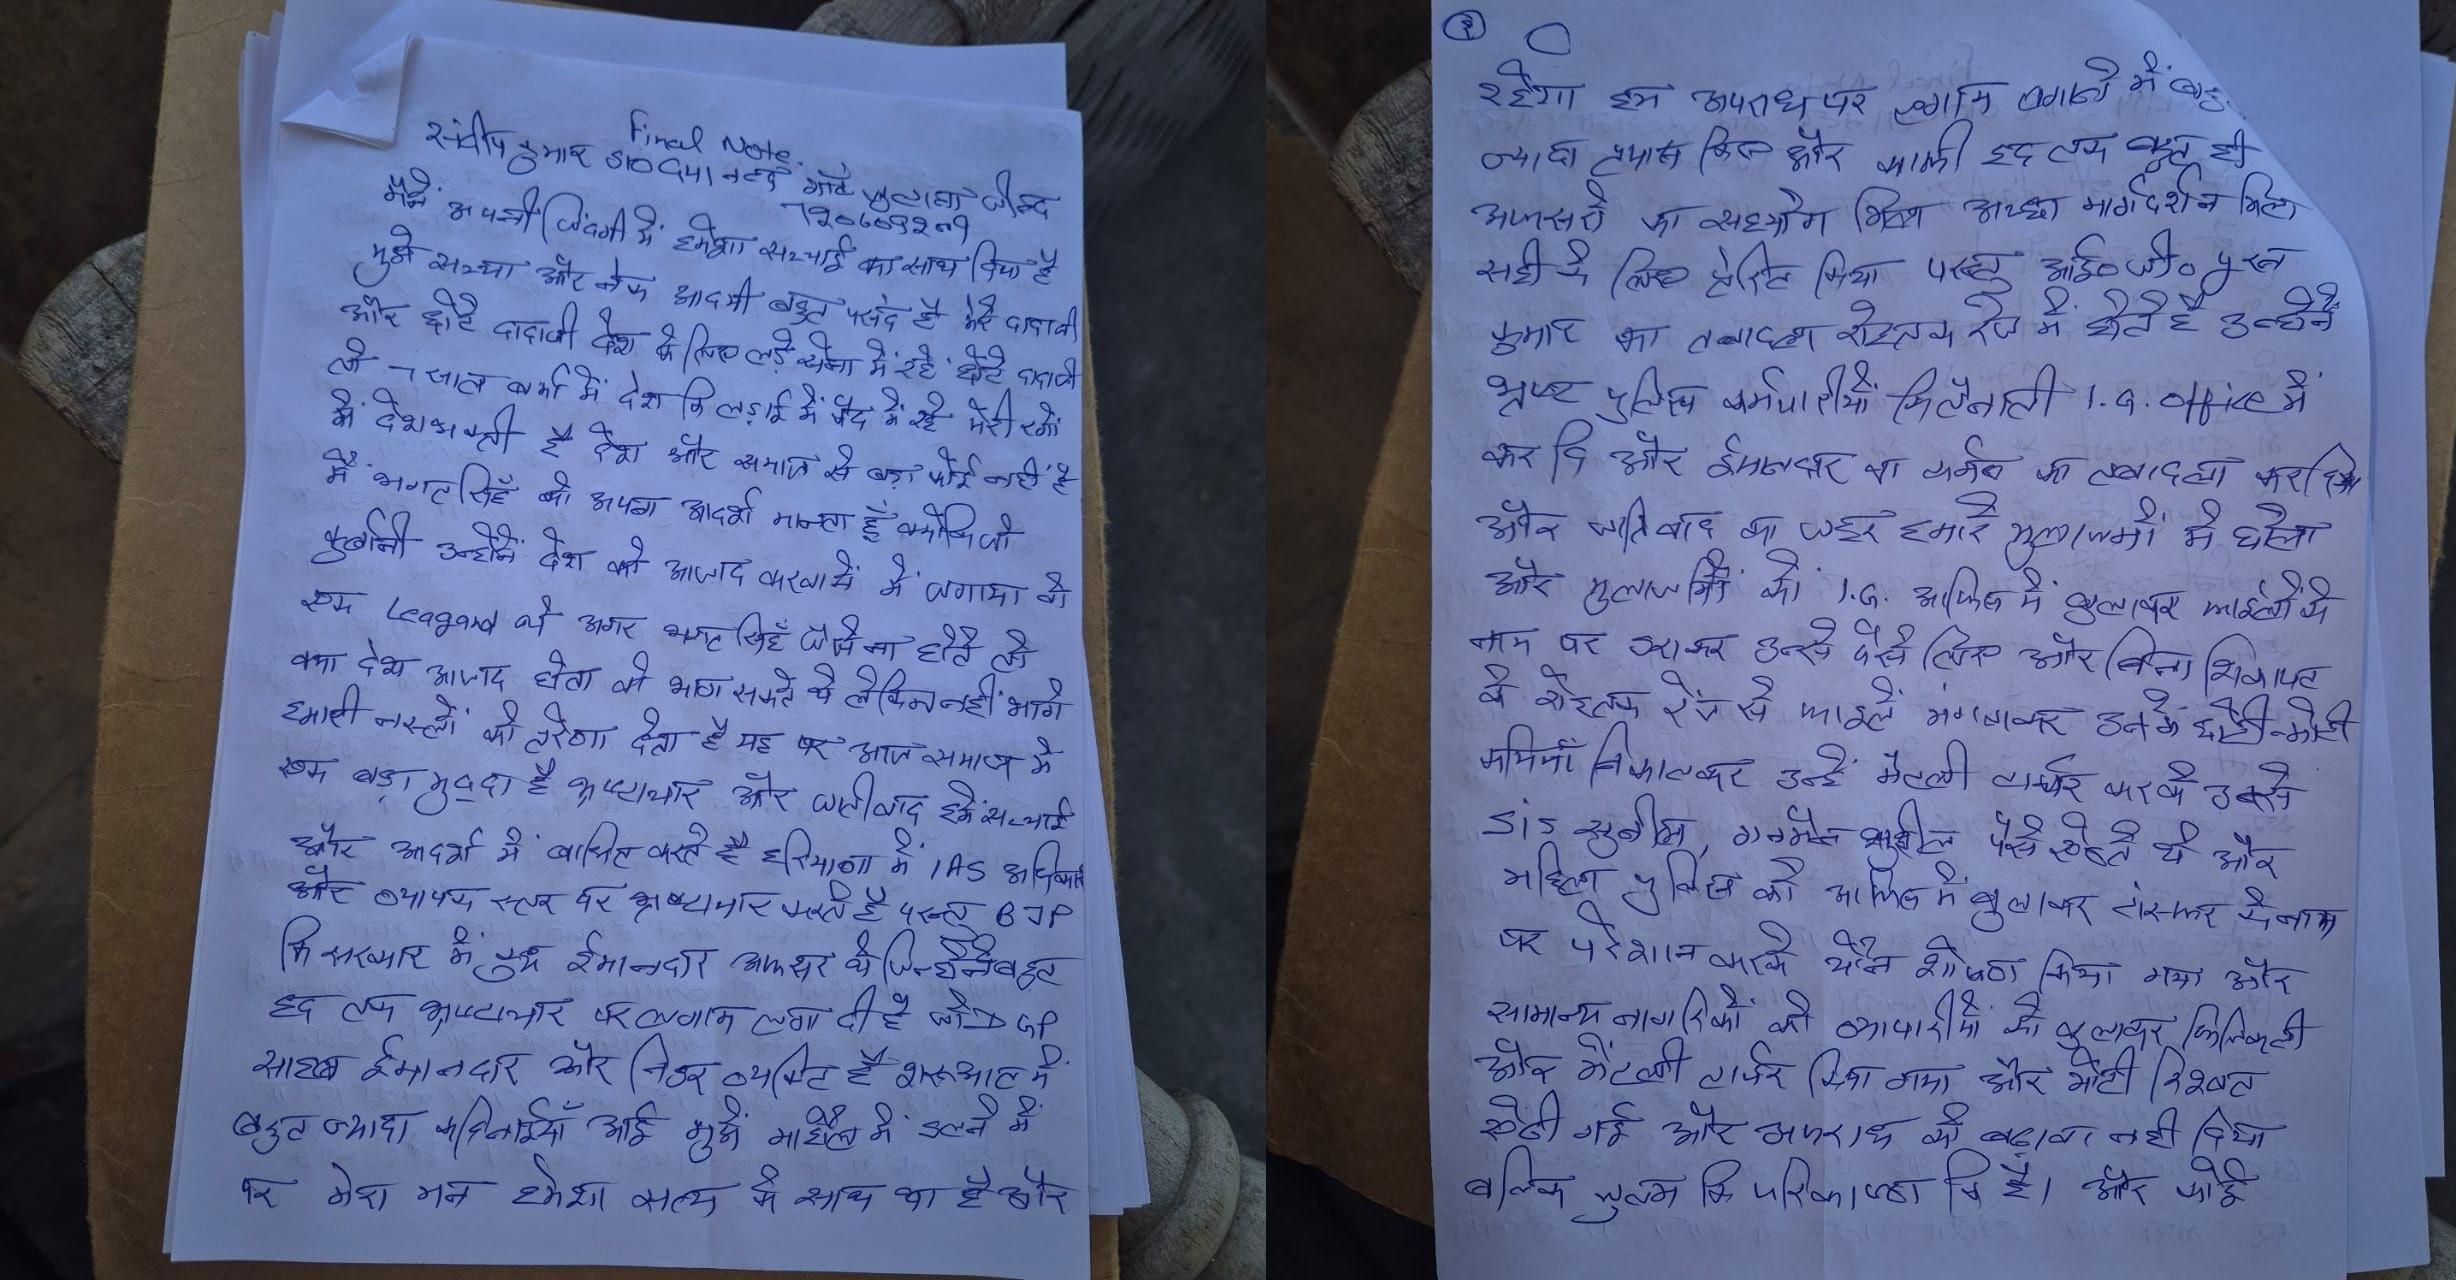 Final Note.
संदीप कुमार S/O दयानन्द गांव जुलाना जीन्द
मैने अपनी जिंदगी में हमेशा सच्चाई का साथ दिया है
मुझे सच्चा और नेक आदमी बहुत पसंद है मेरे दादाजी
और छोटे दादाजी देश के लिए लड़े सेना में रहे छोटे दादाजी
तो 7 साल बर्मा में देश कि लड़ाई में कैद में रहे मेरी रगों
में देशभक्ती है देश और समाज से बड़ा कोई नहीं है
मैं भगतसिहँ को अपना आदर्श मानता हूँ क्योकि जो
कुर्बानी उन्होनें देश को आजाद करवाने में लगाया वो
एक Leagand थे अगर भगत सिहँ जैसे ना होते तो
क्या देश आजाद होता वो भाग सकते थे लेकिन नहीं भागे
हमारी नस्लों को प्रेरणा देता है यह पर आज समाज में
एक बड़ा मुददा है भ्रष्टाचार और जातीवाद हमें सच्चाई
और आदर्श में बाधित करते है हरियाणा में IAS अधिकारी
और व्यापक स्तर पर भ्रष्टाचार करते है परन्तु BJP
कि सरकार में कुछ ईमानदार अफसर थे जिन्होंने बहुत
हद तक भ्रष्टाचार पर लगाम लगा दी है जो DGP
साहब ईमानदार और निडर व्यक्ति है शरूआत में
बहुत ज्यादा कठिनाईयाँ आई मुझे माहौल में ढलने में
पर मेरा मन हमेशा सत्य के साथ था है और
रहेगा हम अपराध पर लगाम लगाने में बहु
ज्यादा प्रयास किए और काफी हद तक बहुत ही
अफसरों का सहयोग मिला अच्छा मार्गदर्शन मिला
सही के लिए प्रेरित किया परन्तु आई॰ जी॰ पुरन
कुमार का तबादला रोहतक रेंज में होते है उन्होने
भ्रष्ट पुलिस कर्मचारीयों कि तैनाती I.G. office में
कर दि और ईमानदार का तबादला कर दिया
और जातिवाद का जहर हमारे मुलाजमों में घोला
और मुलाजमों को I.G. आफिस में बुलाकर फाईलों के
नाम पर डराकर उनसे पैसे लिए और बिना शिकायत
के रोहतक रेंज से फाइलें मंगवाकर उनमें छोटी-मोटी
कमियाँ निकालकर उन्हें मैंटली टार्चर करके उनसे
सुनील, गनमैन सुशील पैसे ऐंठते थे और
महिला पुलिस को आफिस में बुलाकर ट्रांसफर के नाम
पर परेशान करके यौन शोषण किया गया और
सामान्य नागरिकों को व्यापारीयों को बुलाकर फिजिकली
और मैंटली टार्चर किया गया और मोटी रिश्वत
ऐंठी गई और अपराध को बढ़ावा नही दिया
बल्कि जुल्म कि पराकाष्ठा कि है। और कोई